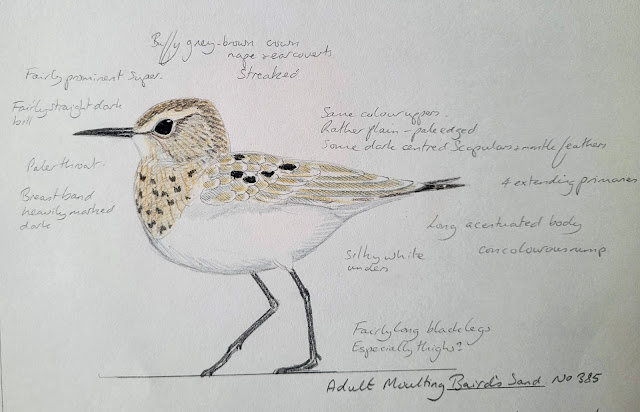 Buffy grey-brown crown
nape & ear coverts
Streaked
Fairly prominent super.
Fairly straight dark
bill
Paler throat.
Breast band
heavily marked
dark
Same colour uppers.
Rather plain - pale edged
Some dark centred Scapulars & mantle feathers
4 extending primaries
Long acestuated body
concolourous rump
Silky white
unders
Fairly long black legs
Especially thighs?
Adult Moulting Baird's Sand No 385